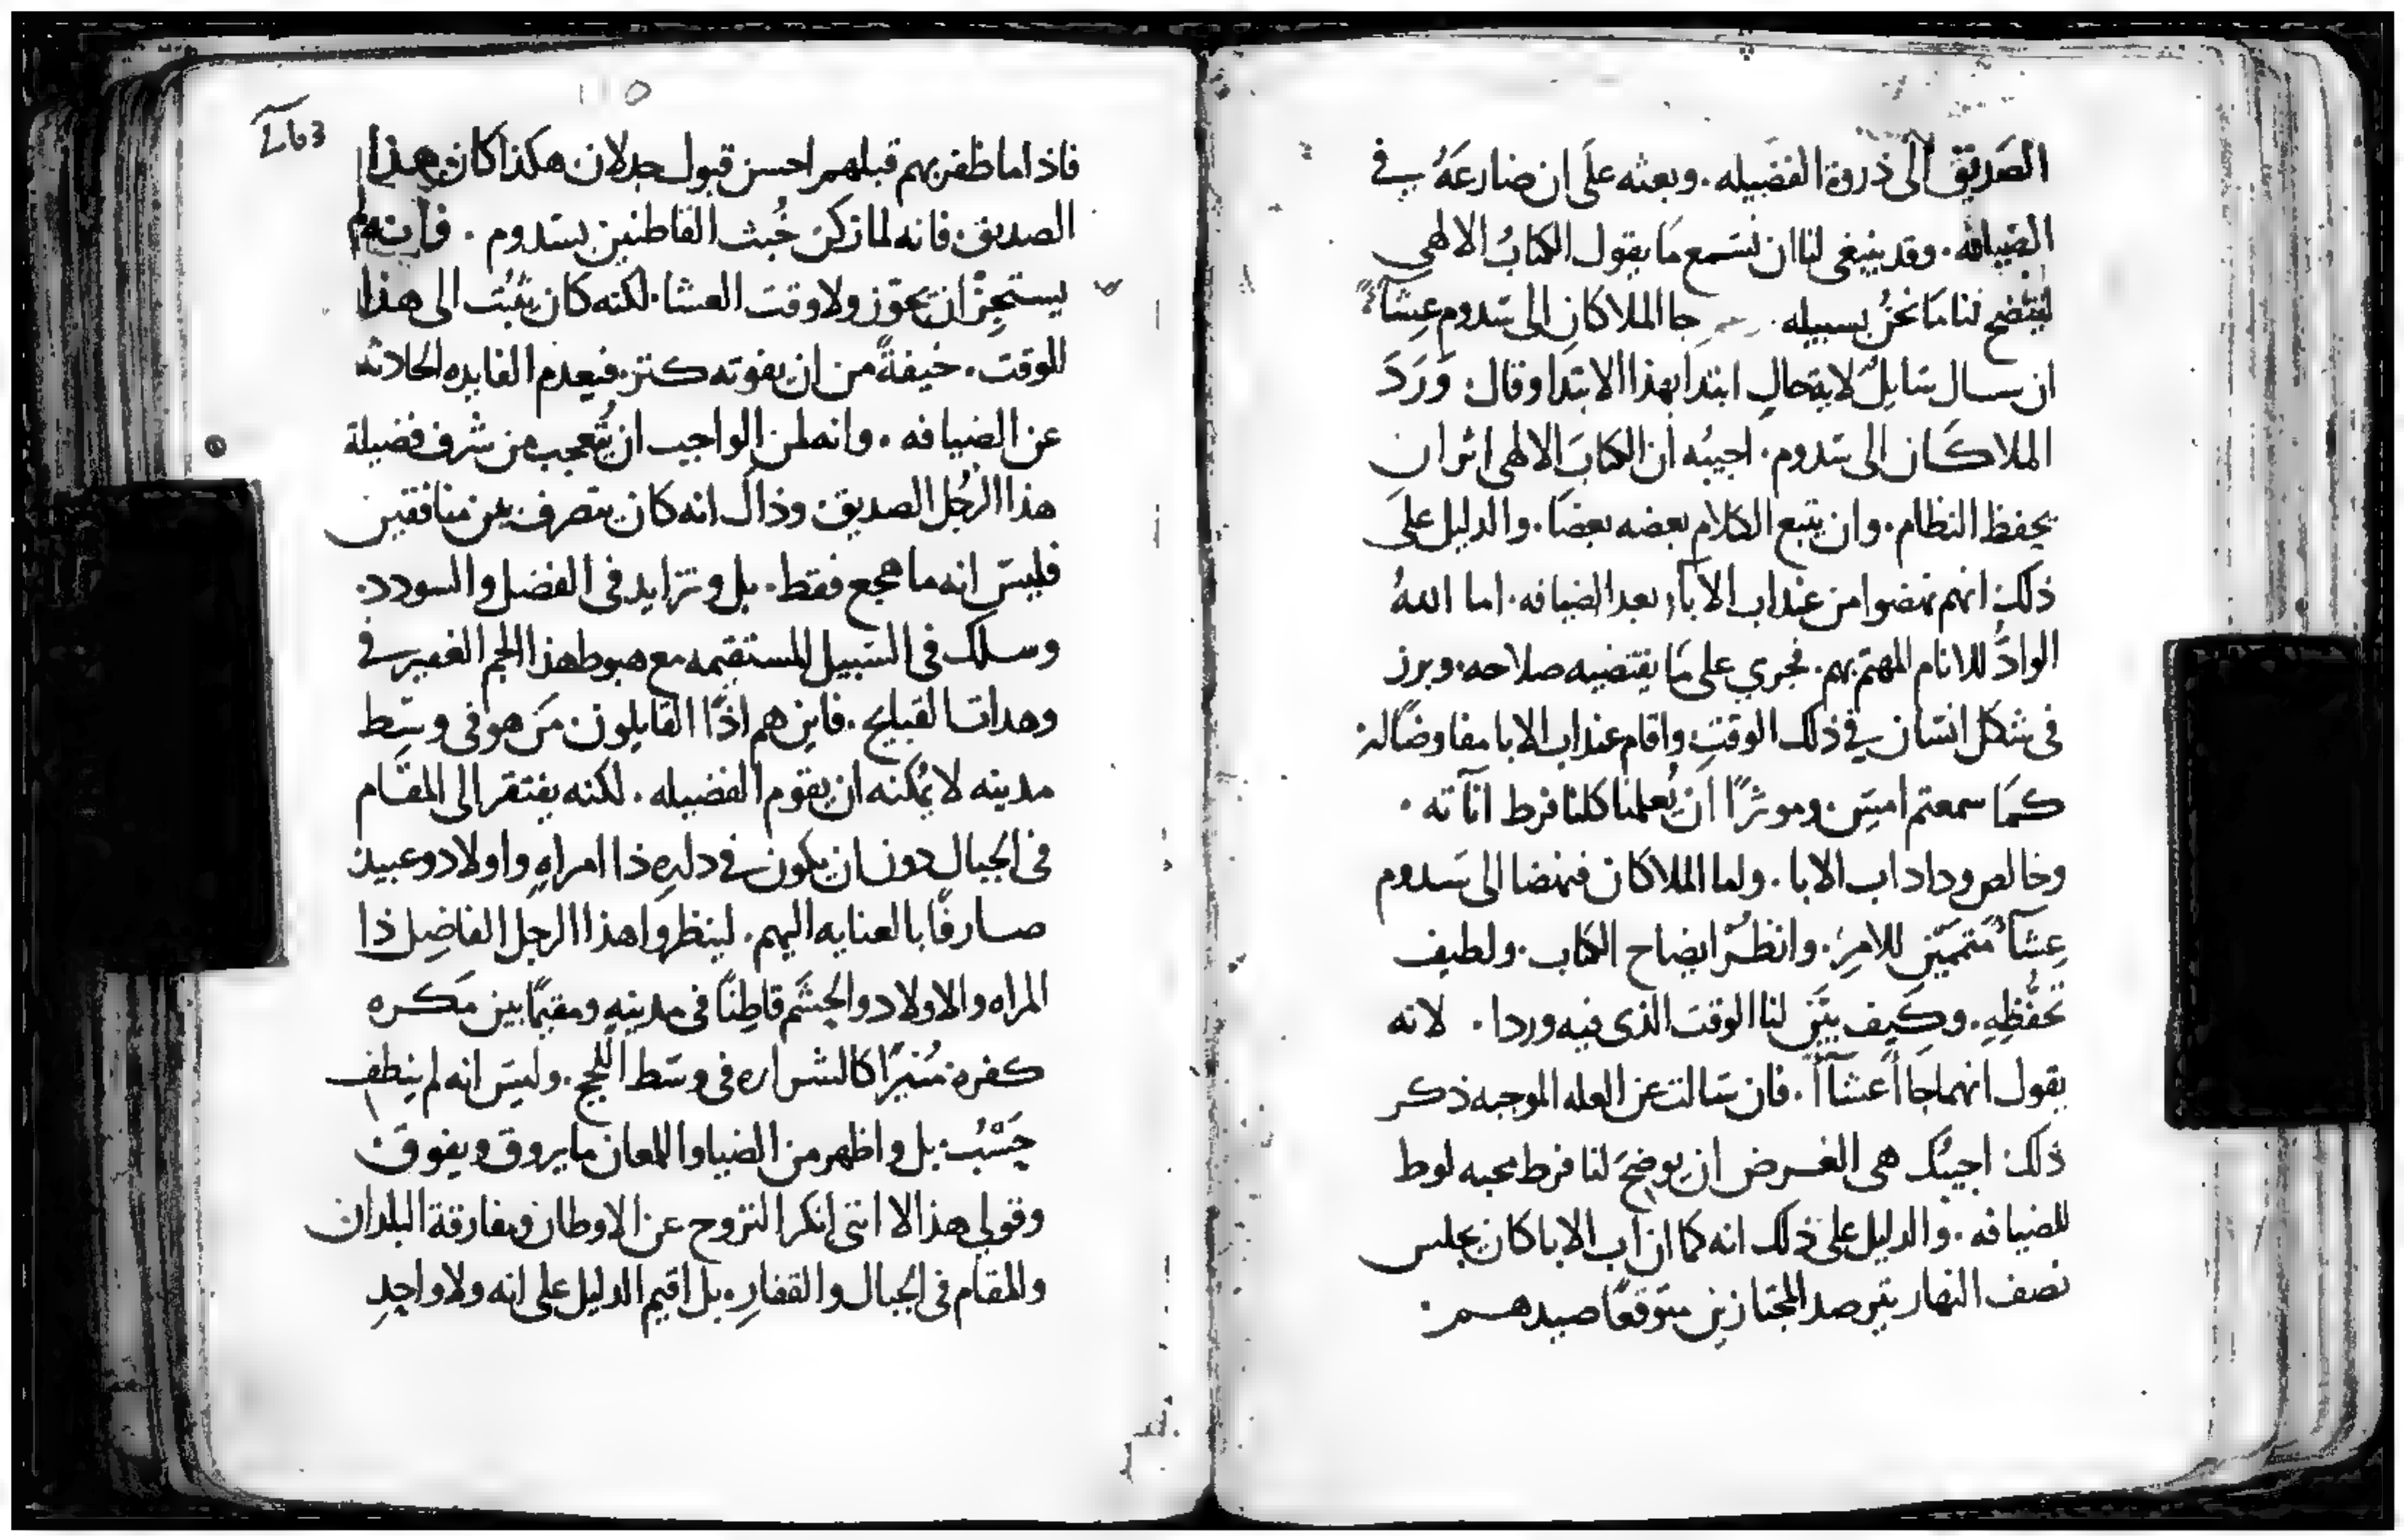 الصديق الى ذروة الفضيله . وبعثه علَى ان ضارعَهُ في
الضيافه . وقد ينبغى لنا ان نسَمع مَا يقول الكتابُ الالهي
ليتضح لنا مَا نحنُ بسبيله . جا الملاكانِ الى سَدوم عِشآً
ان سال سَايلٌ لاية حالٍ ابتدا بهذا الابتدا وقال وَرَدَ
الملاكان الى سَدوم . اجيبُه ان الكتابَ الالهى اثر ان
يحفظ النظام . وان يتبع الكلام بعضه بعضَا . والدليل علَى
ذلك انهم نهضوا من عند اب الاباء بعد الضيافه . اما اللهُ
الوادُّ للانام المهتم بهم . فجري على مَا يقتضيه صلاحه . وبرز
فى شكل انسَان في ذلك الوقتِ واقام عند اب الابا مفاوضًا له
كمَا سمعتم امسِ . وموثرًا ان يُعلمنا كلنا فرط اناته .
وخالص وداد اب الابا . واما الملاكان فنهضا الى سَدوم
عِشآً مُتممَين للامرِ . وانظرْ ايضاح الكتاب . ولطيف
تحفُّظِهِ . وكيف بيَّن لنا الوقت الذى فيه وردا . لانه
يقول انهما جاا عشآً . فان سَالت عن العله الموجبه ذكر
ذلك اجيبُك هى الغرض ان يوضحَ لنا فرط محبه لوط
للضيافه . والدليل على ذلك انه كما ان اب الابا كان يجلس
نصف النهار يترصد المجتازين متوقعًا صيدهم .
فاذا ما ظفر بهم قبلهم احسن قبول جدلان هكذا كان هذا
الصديق فانه لما زكن خُبث القاطنين بسَدوم . فانه لم
يستجِز ان يحوّز ولا وقت العشا . لكنه كان يثبُت الى هذا
الوقت . خيفةً من ان يفوته كنز . فيعدم الفايده الحادثه
عن الضيافه . وانه لمن الواجب ان يُتعجب من شرف فضيلة
هذا الرجُل الصديق وذاك انه كان يتصرف بين منافقين
فليسَ انه ما هجع فقط . بل وتزايد فى الفضل والسودد .
وسلك فى السَبيل المستقيمه مع هبوط هذا الجم الغفير في
وهدات القبايح . فاين هم اذًا القايلون مَن هو فى وسَط
مدينه لا يُمكنه ان يقوم الفضيله . لكنه يفتقر الى المقَام
فى الجبال دون ان يكون في داره ذا امراهٍ واولاد وعبيد
صارفًا بالعنايه اليهم . لينظروا هذا الرجل الفاضِل ذا
المراه والاولاد والحشَم قاطِنًا فى مدينهٍ ومقيمًا بين مَكره
كفره . مُنيرًا كالشراره فى وسَط اللُجج . وليسَ انه لم ينطف
حَسْبُ . بل واظهر من الضيا واللمعان ما يروق ويفوق
وقولي هذا لا انني انكر النزوح عن الاوطان ومفارقة البلدان
والمقام فى الجبال والقفارِ . بل اقيم الدليل على انه ولا واحِدٍ